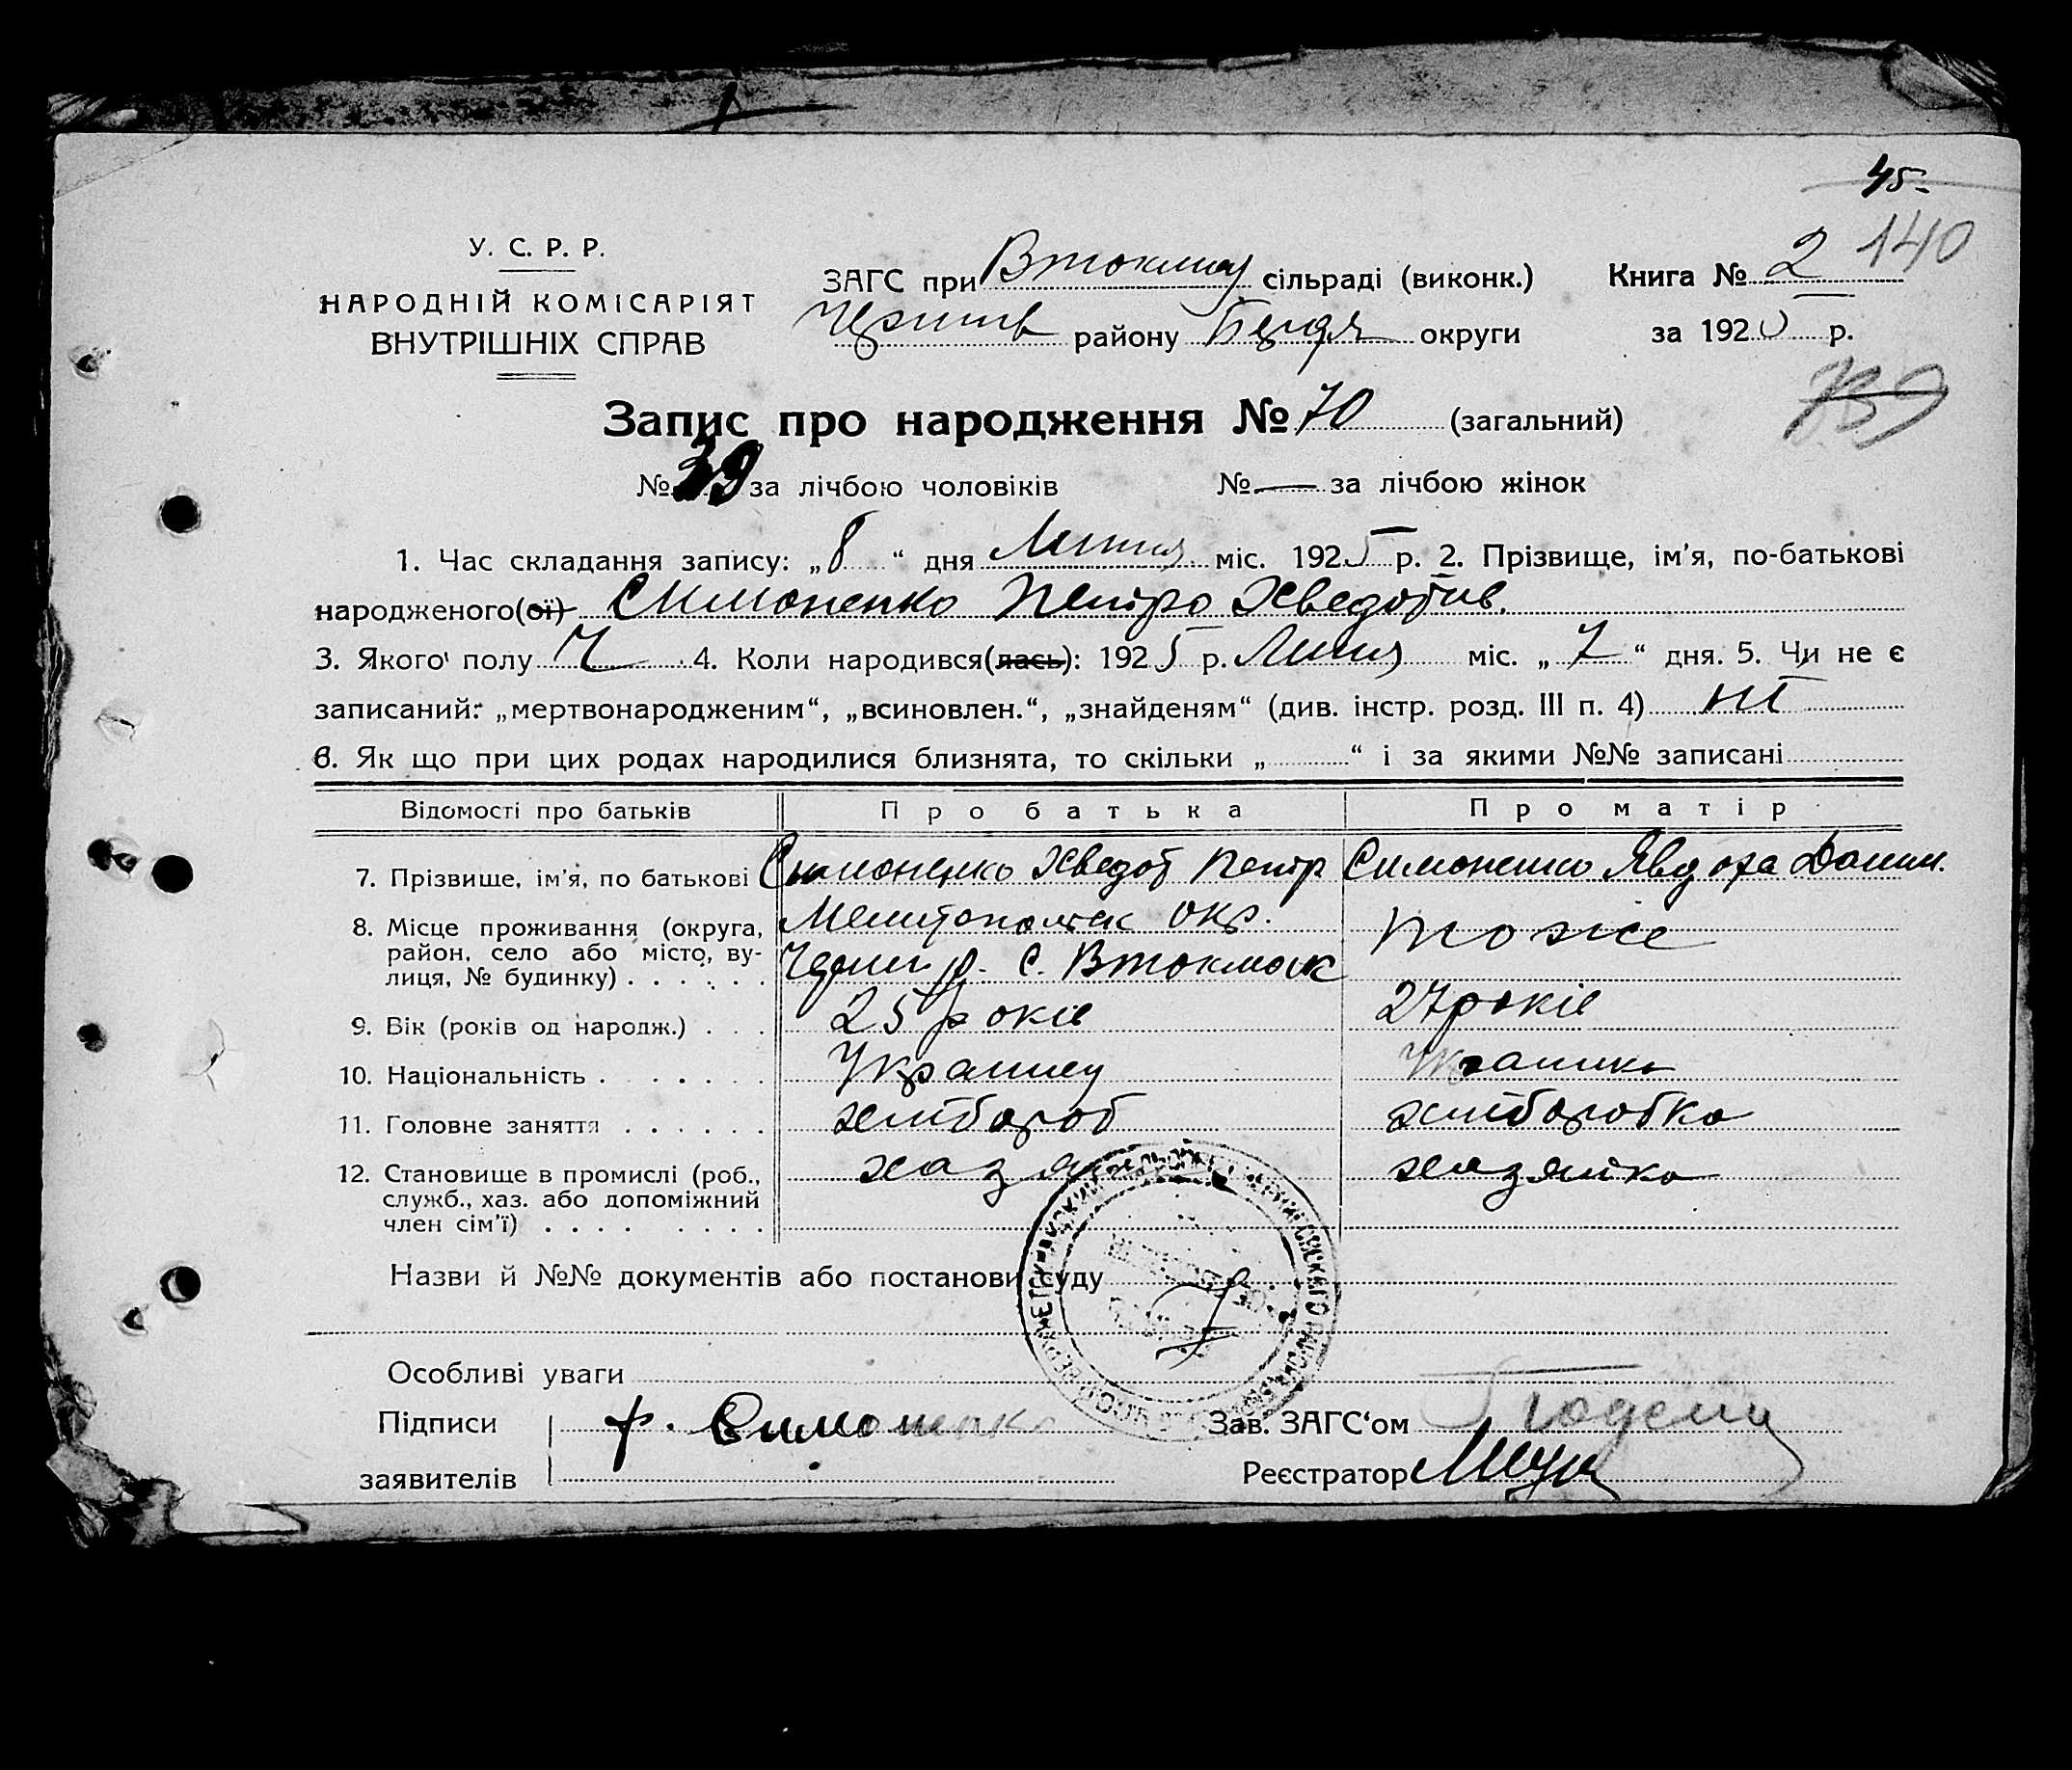 45-
У. С. Р. Р.
НАРОДНІЙ КОМІСАРІЯТ
ВНУТРІШНІХ СПРАВ
ЗАГС при Втокмац сільраді (виконк.)
Книга № 2 140
району округи
за 1925 р.
Запис про народження № 70 (загальний)
№ 39 за лічбою чоловіків № — за лічбою жінок
1. Час складання запису: „8“ дня Липня міс. 1925 р. 2. Прізвище, ім’я, по-батькові
народженого(ої) Симоненко Петро Хведотів.
3. Якого полу Ч 4. Коли народився(лась): 1925 р. Липня міс. „7“ дня. 5. Чи не є
записаний: „мертвонародженим“, „всиновлен.“, „знайденям“ (див. інстр. розд. III п. 4) ні
6. Як що при цих родах народилися близнята, то скільки „ “ і за якими №№ записані
Відомості про батьків Про батька Про матір
7. Прізвище, ім’я, по батькові Симоненко Хведот Петр Симоненко Явдоха Данил.
8. Місце проживання (округа, район, село або місто, вулиця, № будинку) Мелитопольск окр. тоже
Черниг р. с. Втокмак
9. Вік (років од народж.) 25 років 27 років
10. Національність Украинец Украинка
11. Головне заняття хлібороб хлiборобка
12. Становище в промислі (роб., служб., хаз. або допоміжний член сім’ї) хазяин хазяйка
Назви й №№ документів або постанови суду
Особливі уваги
Підписи
заявителів
Симоненко
Зав. ЗАГС‘ом
Реєстратор